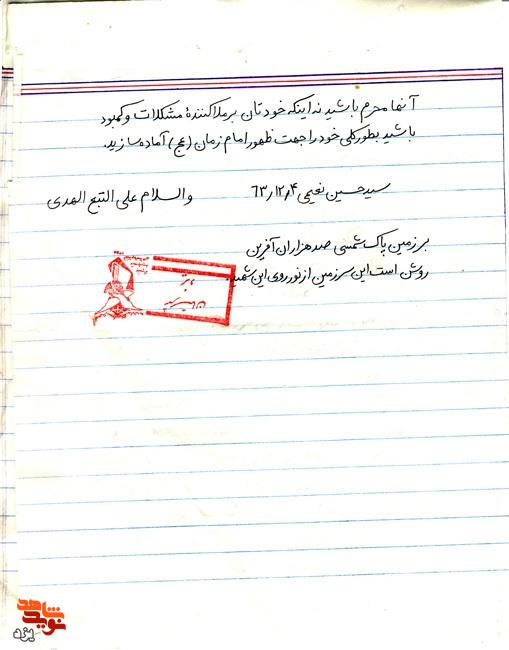 آنها محرم باشید نه اینکه خودتان برملا کنندهٔ مشکلات و کمبود
باشید بطور کلی خود را جهت ظهور امام زمان (عج) آماده سازید.
سید حسین نعیمی ۶۳/۱۲/۴ والسلام علی التبع الهدی
برزمین پاک شمسی صد هزاران آفرین
روشن است این سرزمین از نور روی این
نوید شاهد
یزد